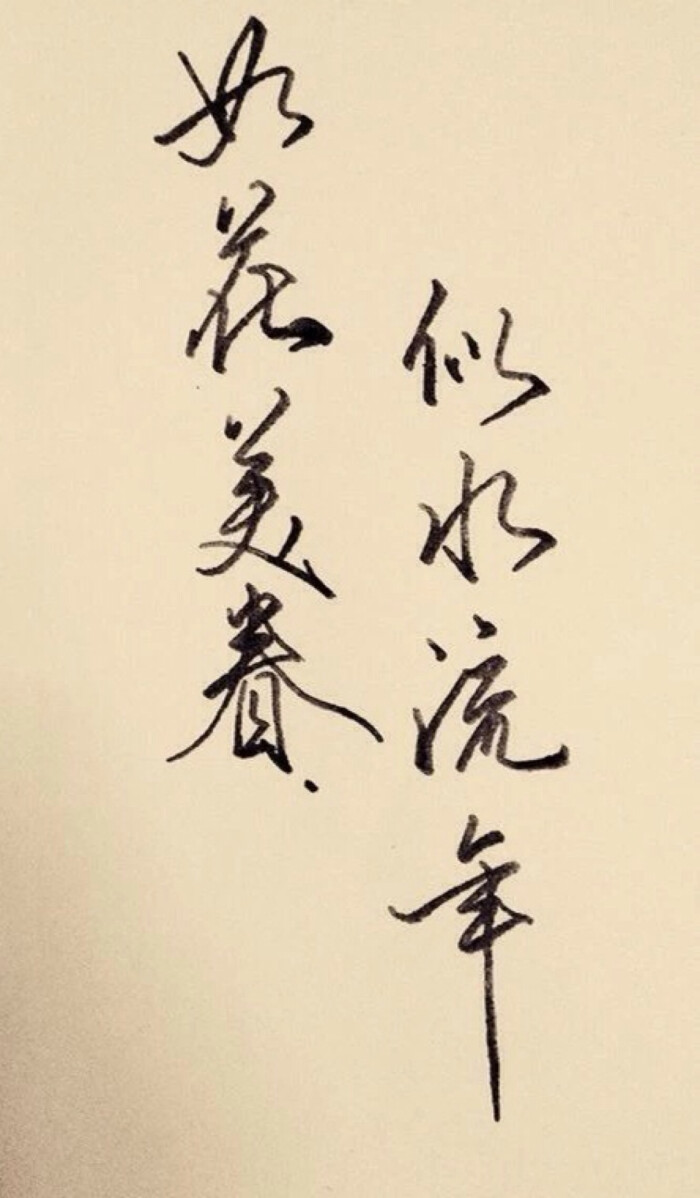 如花美眷.
似水流年